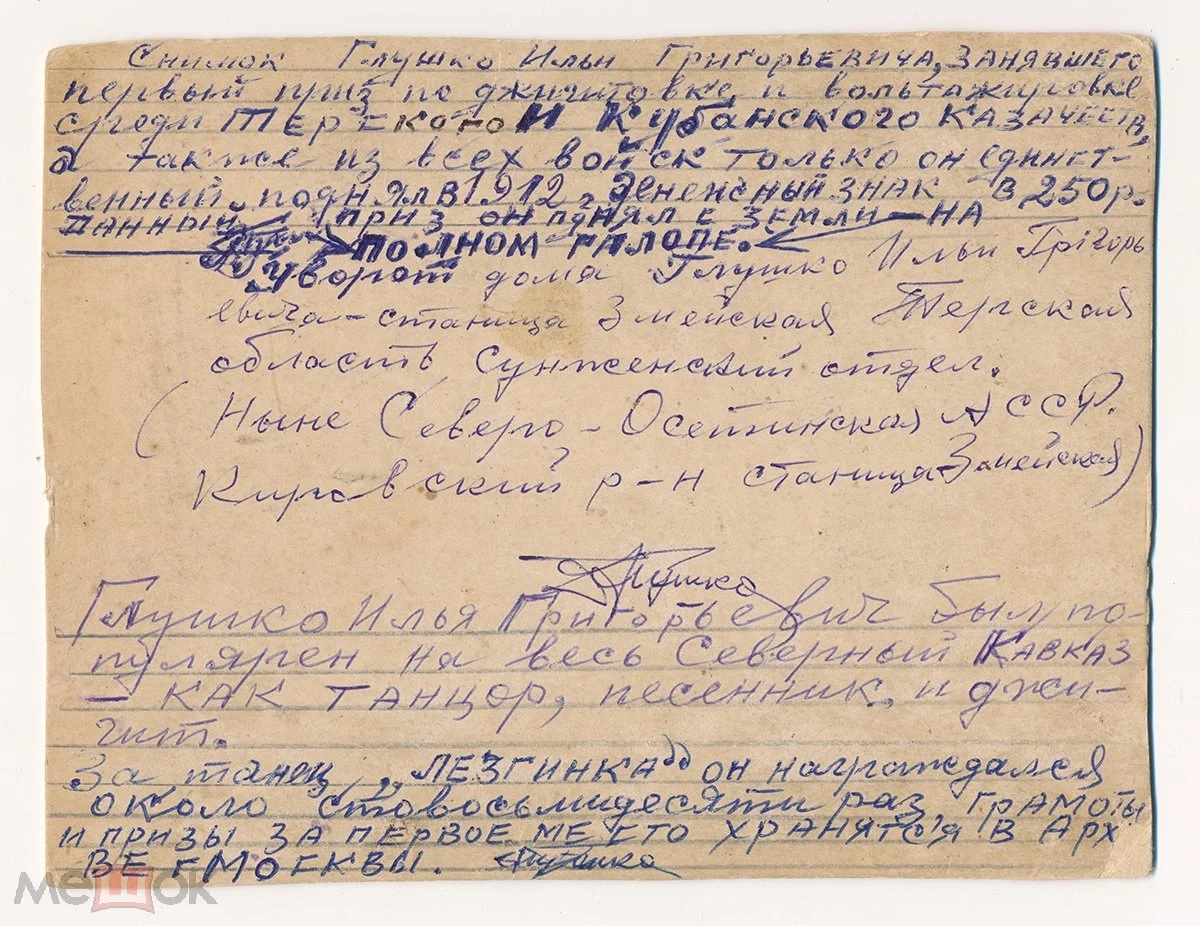 Снимок Глушко Ильи Григорьевича, занявшего
первый приз по джигитовке и вольтажировке
среди Терского и Кубанского казачеств,
а также из всех войск только он единст-
венный поднял в 1912 г. денежный знак в 250 р.
данный приз он поднял с земли — на
полном галопе.
У ворот дома Глушко Ильи Грігорь
евича – станица Змейская Терская
область Сунженский отдел.
(Ныне Северо-Осетинская АССР.
Кировский р-н станица Змейская)
Глушко
Глушко Илья Григорьевич был по-
пулярен на весь Северный Кавказ
– как танцор, песенник и джи-
гит.
За танец „Лезгинка" он награждался
около стовосьмидесяти раз грамоты
и призы за первое место хранятся в Арх
ве г Москвы. Глушко
мешок